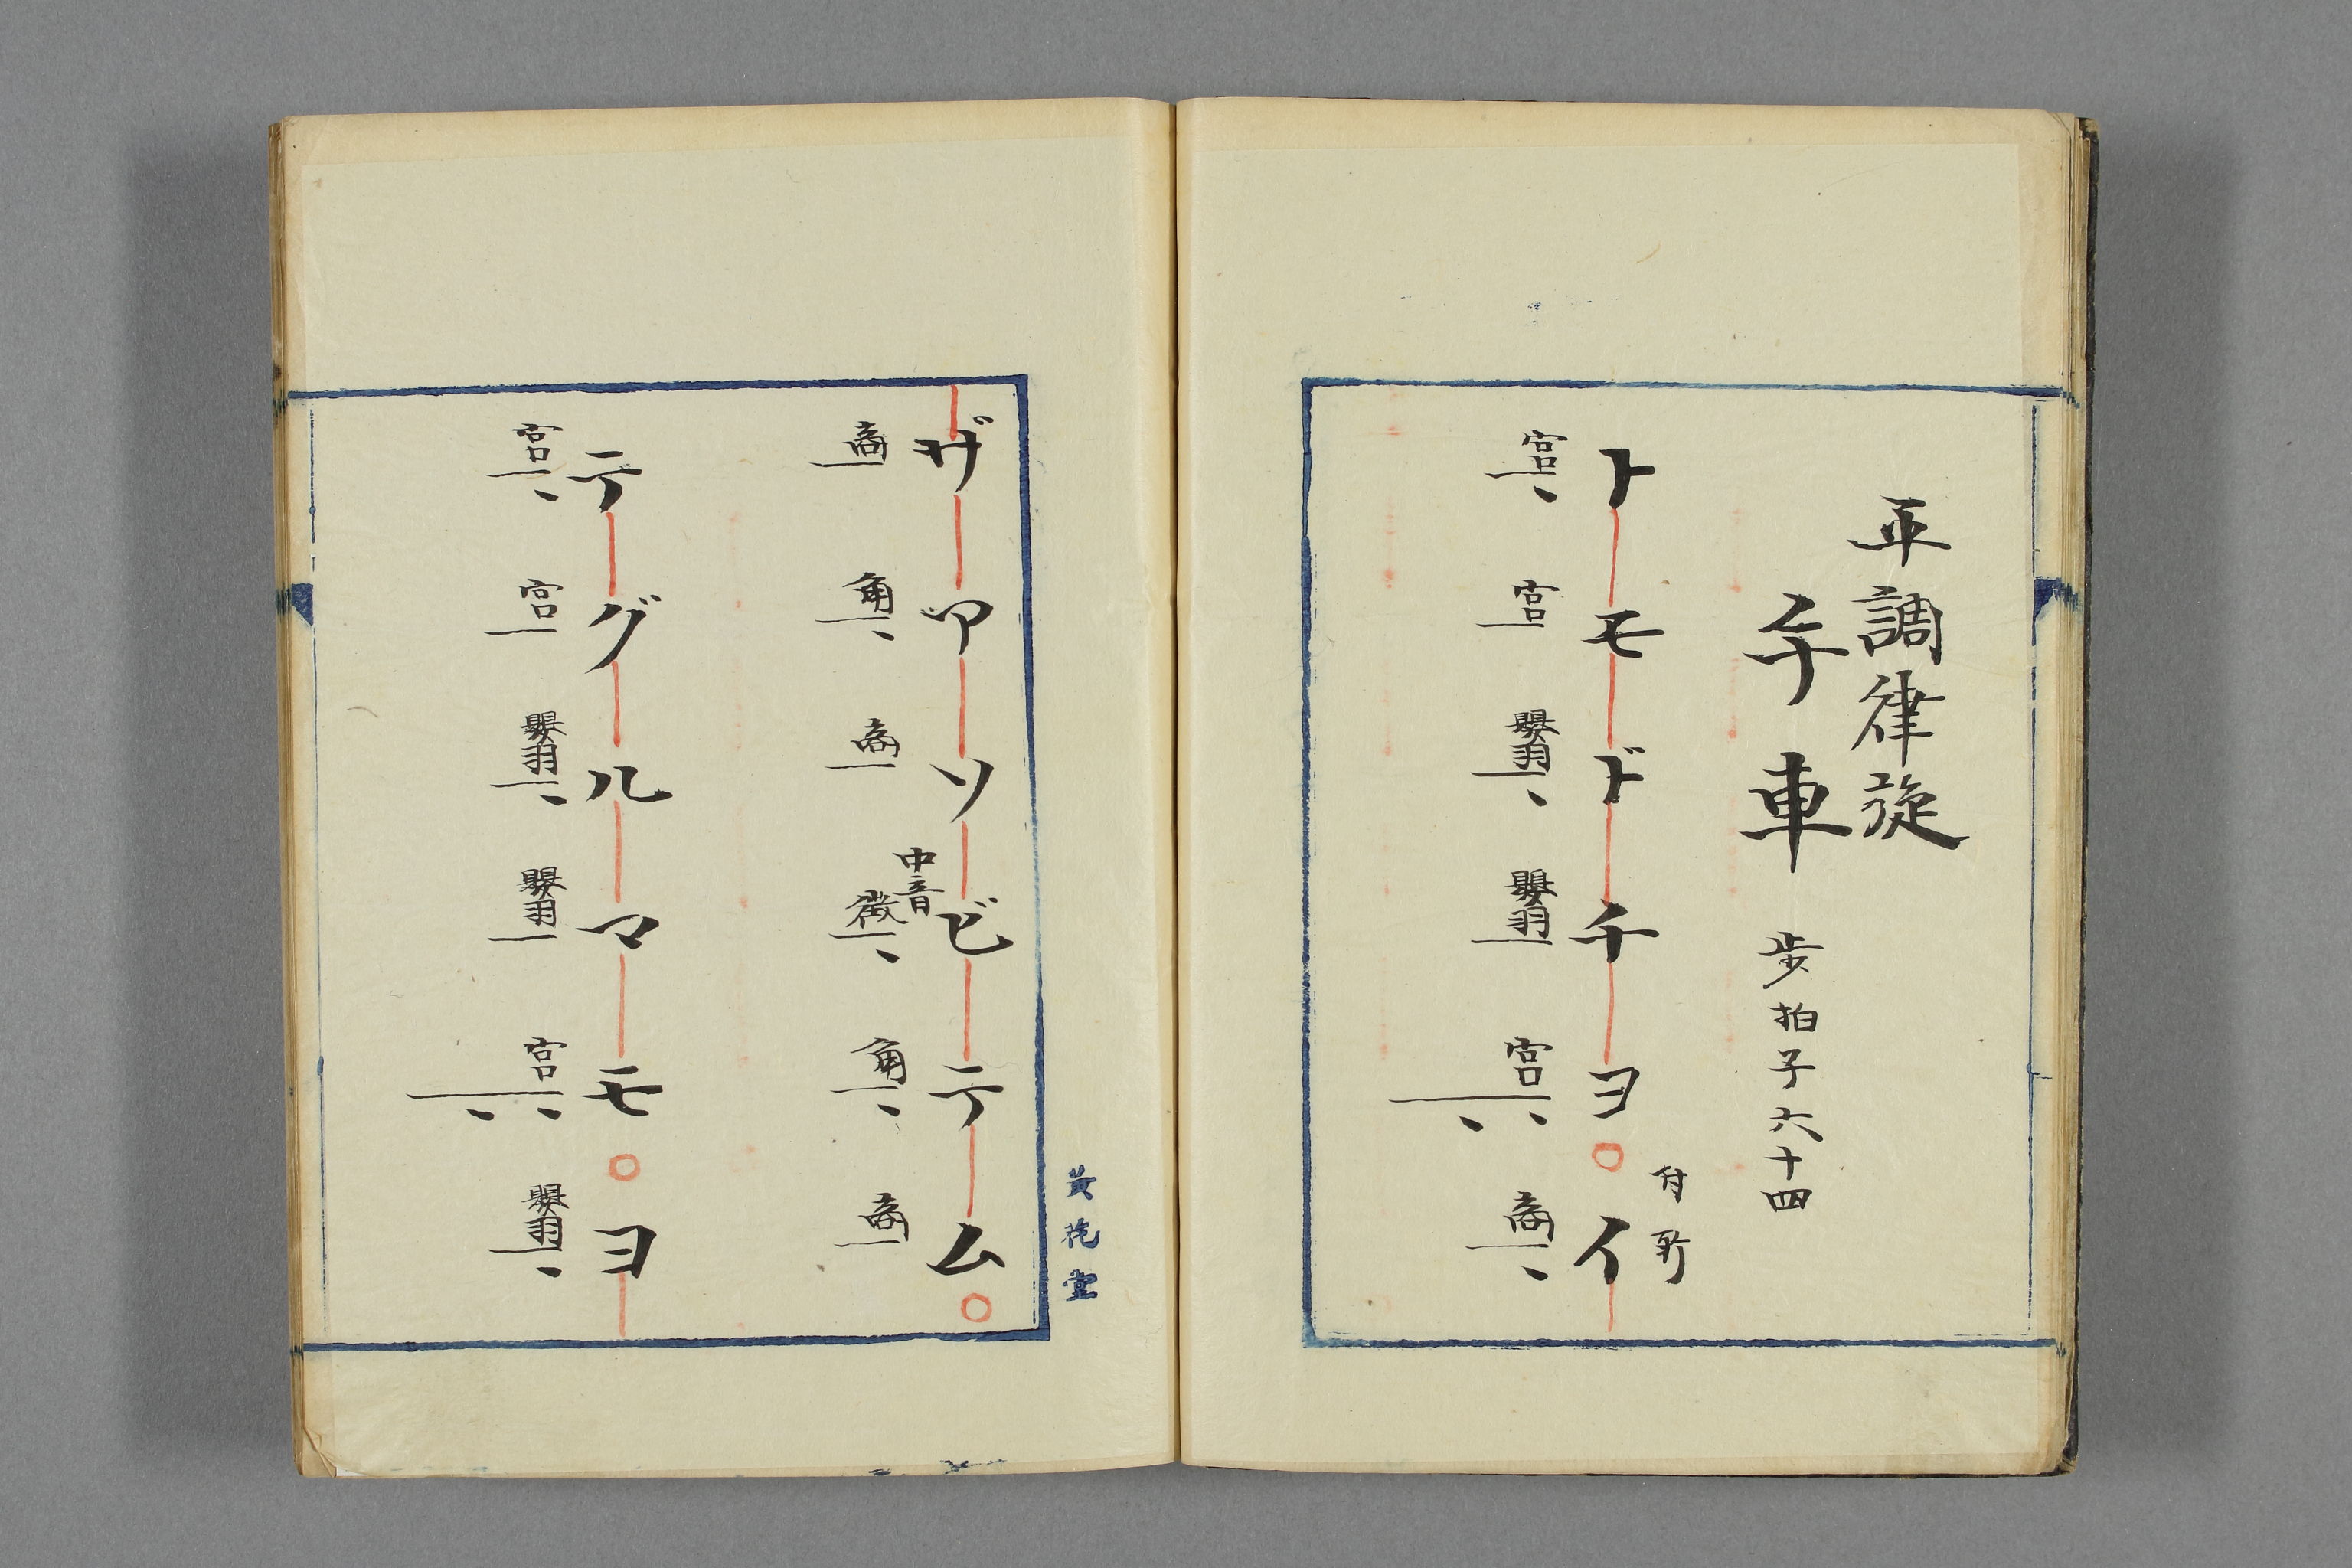 平調律旋
手車 歩拍子六十四
付所
トモドチヨ○イ
宮 宮 嬰羽 嬰羽 宮 商
ザアソビテム○
中音
商 角 商 徴 角 商
テグルマモ○ヨ
宮 宮 嬰羽 嬰羽 宮 嬰羽